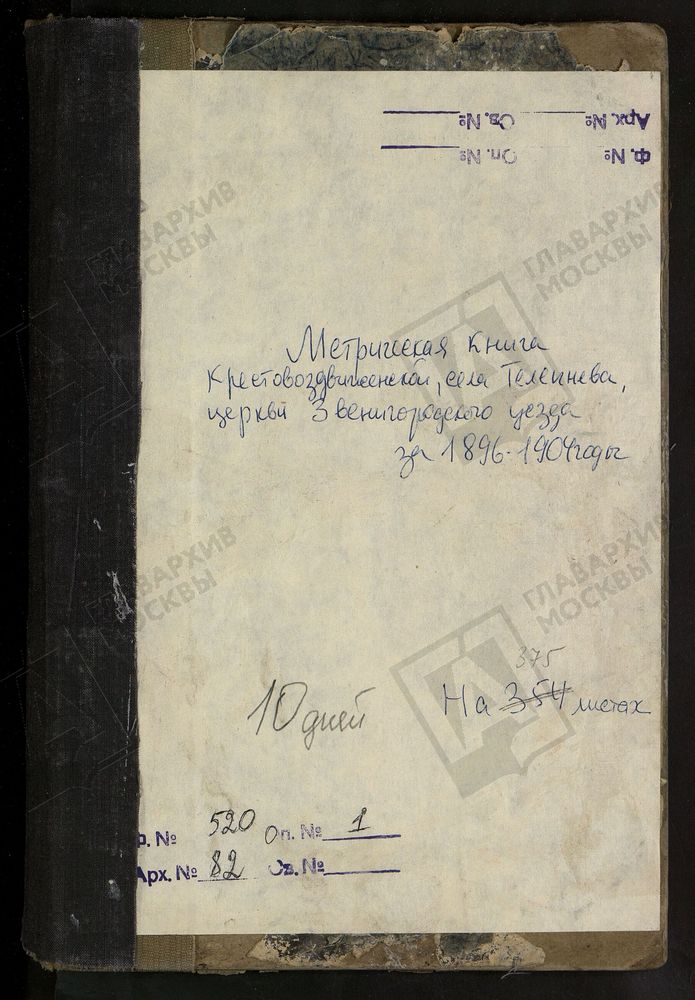 Арх. № Св. №
Ф. № Оп. №
ГЛАВАРХИВ
МОСКВЫ
ГЛАВАРХИВ
МОСКВЫ
Метрическая книга
Крестовоздвиженской, села Телепнева,
церкви Звенигородского уезда
за 1896-1904 годы
ГЛАВАРХИВ
МОСКВЫ
ГЛАВАРХИВ
МОСКВЫ
375
На 354 листах
10 дней
Ф. № 520 Оп. № 1
Арх. № 82 Св. №